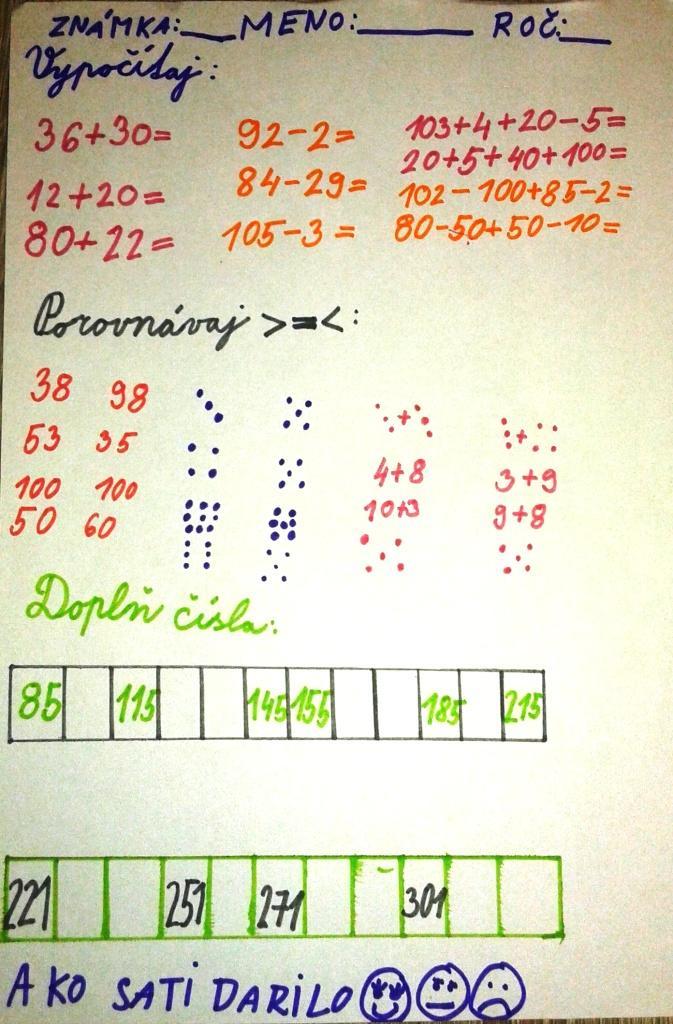 ZNÁMKA:___MENO:_______ ROČ:___
Vypočítaj:
36+30= 92-2= 103+4+20-5=
20+5+40+100=
12+20= 84-29= 102-100+85-2=
80+22= 105-3= 80-50+50-10=
Porovnávaj >=<:
38 98 +
53 35 +
4+8 3+9
100 100 10+3 9+8
50 60
Doplň čísla:
85 115 145 155 185 215
221 251 271 301
AKO SATI DARILO